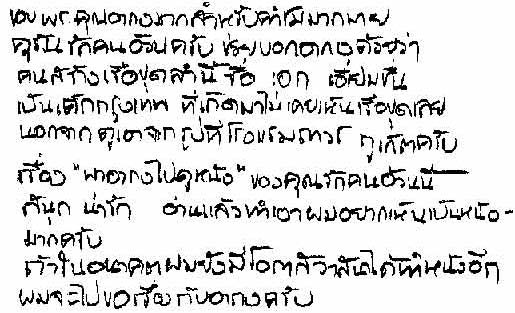 ขอบพระคุณอากงมากสำหรับคำชมมากมาย
คุณรักคนอ้วนครับ ช่วยบอกอากงด้วยว่า
คนสร้างเรือขุดลำนี้ ชื่อ เอก เอี่ยมชื่น
เป็นเด็กกรุงเทพ ที่เกิดมาไม่เคยเห็นเรือขุดเลย
นอกจากดูเอาจากรูปที่โรงแรมถาวร ภูเก็ตครับ
เรื่อง "พาอากงไปดูหนัง" ของคุณรักคนอ้วนนี่
สนุก น่ารัก อ่านแล้วทำเอาผมอยากเห็นเป็นหนัง-
มากครับ
ถ้าในอนาคตผมยังมีโอกาสวาสนาได้ทำหนังอีก
ผมจะไปขอเรื่องกับอากงครับ